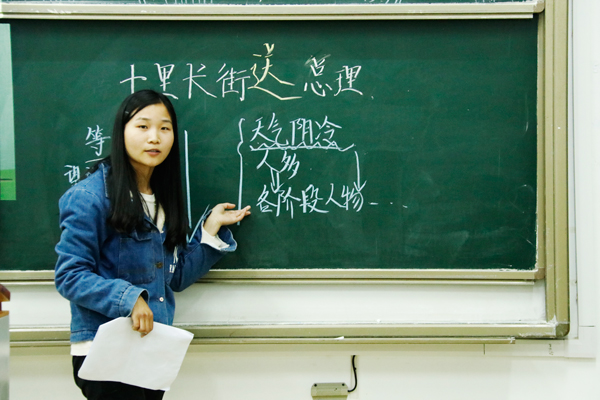 十里长街送总理
等
天气阴冷
人多
各阶段人物...